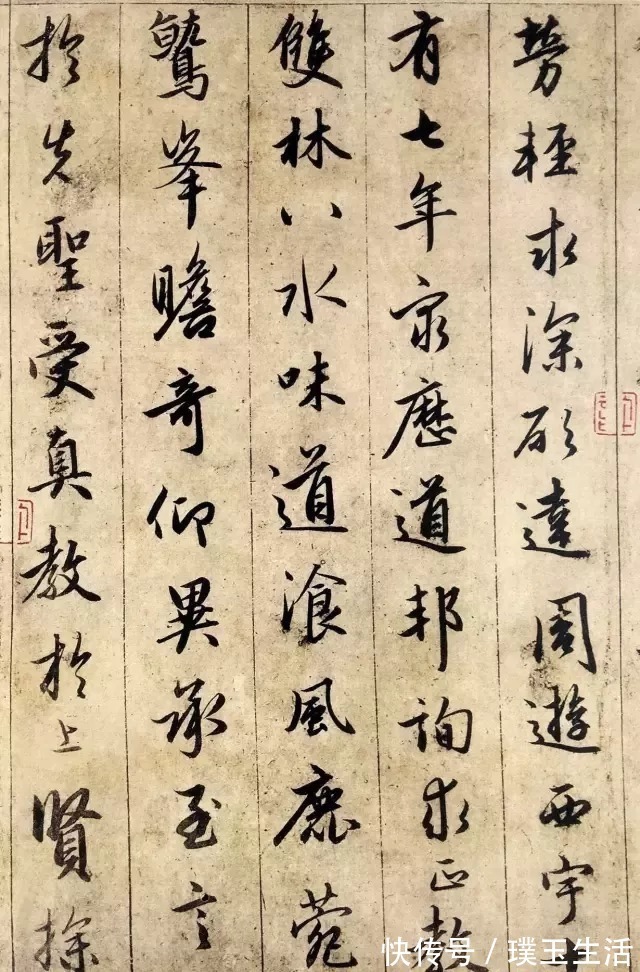 勞輕求深願達周遊西宇
有七年窮歷道邦詢求正教
雙林八水味道飡風鹿菀
鷲峯瞻奇仰異承至言
於先聖受真教於上賢探
快传号 / 璞玉生活